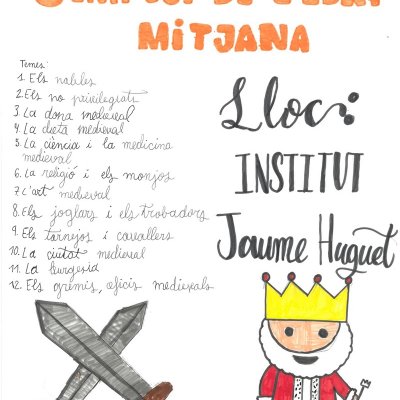 MiTJANA
Temes:
1. Els nobles
2. Els no privilegiats
3. La dona medieval
4. La dieta medieval
5. La ciència i la medicina
medieval
6. La religió i els monjos
7. L'art medieval
8. Els joglars i els trobadors
9. Els tornejos i cavallers
10. La ciutat medieval
11. La burgesia
12. Els gremis, oficis medievals
Lloc:
INSTITUT
Jaume Huguet